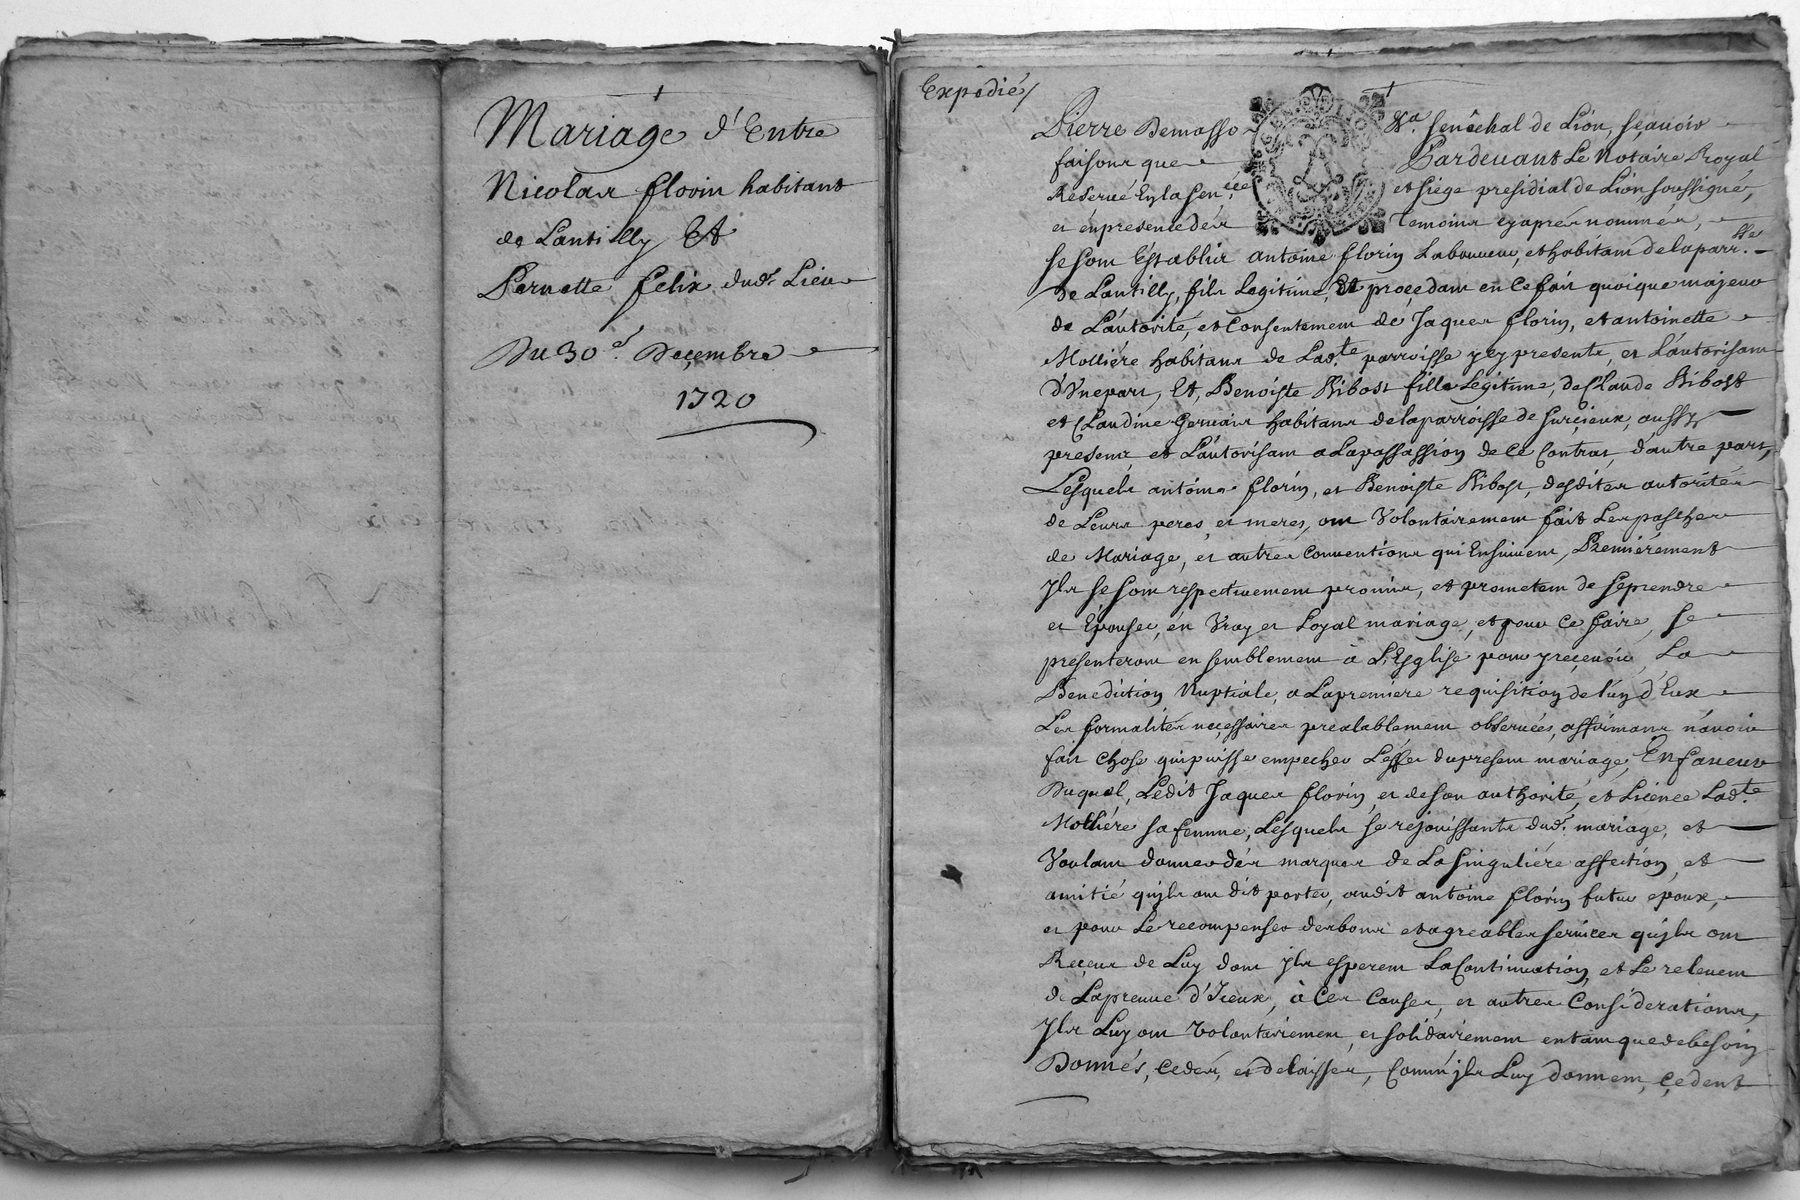 Mariage d'Entre
Nicolas florin habitant
de Lantilly Et
Pernette felix dudt Lieu
Du 30e. Deçembre
1720
Expedié/
Pierre Demasso Senêchal de Lion, sçauoir
faisons que Pardeuant Le Notaire Royal
Reserué En la Sen.cée et siége presidial de Lion, soussigné,
et en presence des temoins cy aprés nommés,
se sont Establis antoine florin Laboureur, et habitant de la parr.sse
de Lantilly, fils Legitime, Et proçedant en ce fait quoique majeur
de L'autorité, et Consentement de Jaques florin, et antoinette
Molliére habitans de Lad.te parroisse y cy presents, et L'autorisant
d'Vne part, Et, Benoiste Ribost fille Legitime, de Claude Ribost
et Claudine Geruais habitans de la parroisse de Surçieux, aussy
presents et L'autorisant a La passassion de ce Contrat, d'autre part,
Lesquels antoine florin, et Benoiste Ribost, desdites autorités
de Leurs peres, et meres, ont Volontairement fait Les pasthes
de Mariage, et autres Conuentions qui Ensuiuent, Premiérement
Jls se sont respectiuement promis, et prometent de se prendre
et Epouser, en Vray et Loyal mariage, et pour ce faire, se
presenteront en semblement à L'Esglise pour y reçeuoir La
Benediction Nuptiale, a La premiere requisition de l'un d'Eux
Les formalités neçessaires prealablement obseruées, affirmans n'auoir
fait chose qui puisse empecher L'effet du present mariage, En faueur
Duquel, Ledit Jaques florin, et de son authorité, et Licence Lad.te
Molliére sa femme, Lesquels se rejouissants dud.t mariage, et
Voulant donner des marques de La singuliére affection, et
amitié qu'jls ont dit porter, audit antoine florin futur epoux,
et pour Le recompenser des bons et agreables seruices qu'jls ont
Reçeus de Luy dont Jls esperent La Continuation, et Le releuent
de La preuue d'Iceux, à Ces Causes, et autres Considerations,
Jls Luy ont Volontairement, et solidairement entant que de besoin
Donnés, cedés, et delaissés, Comm'jls Luy donnent, cedent